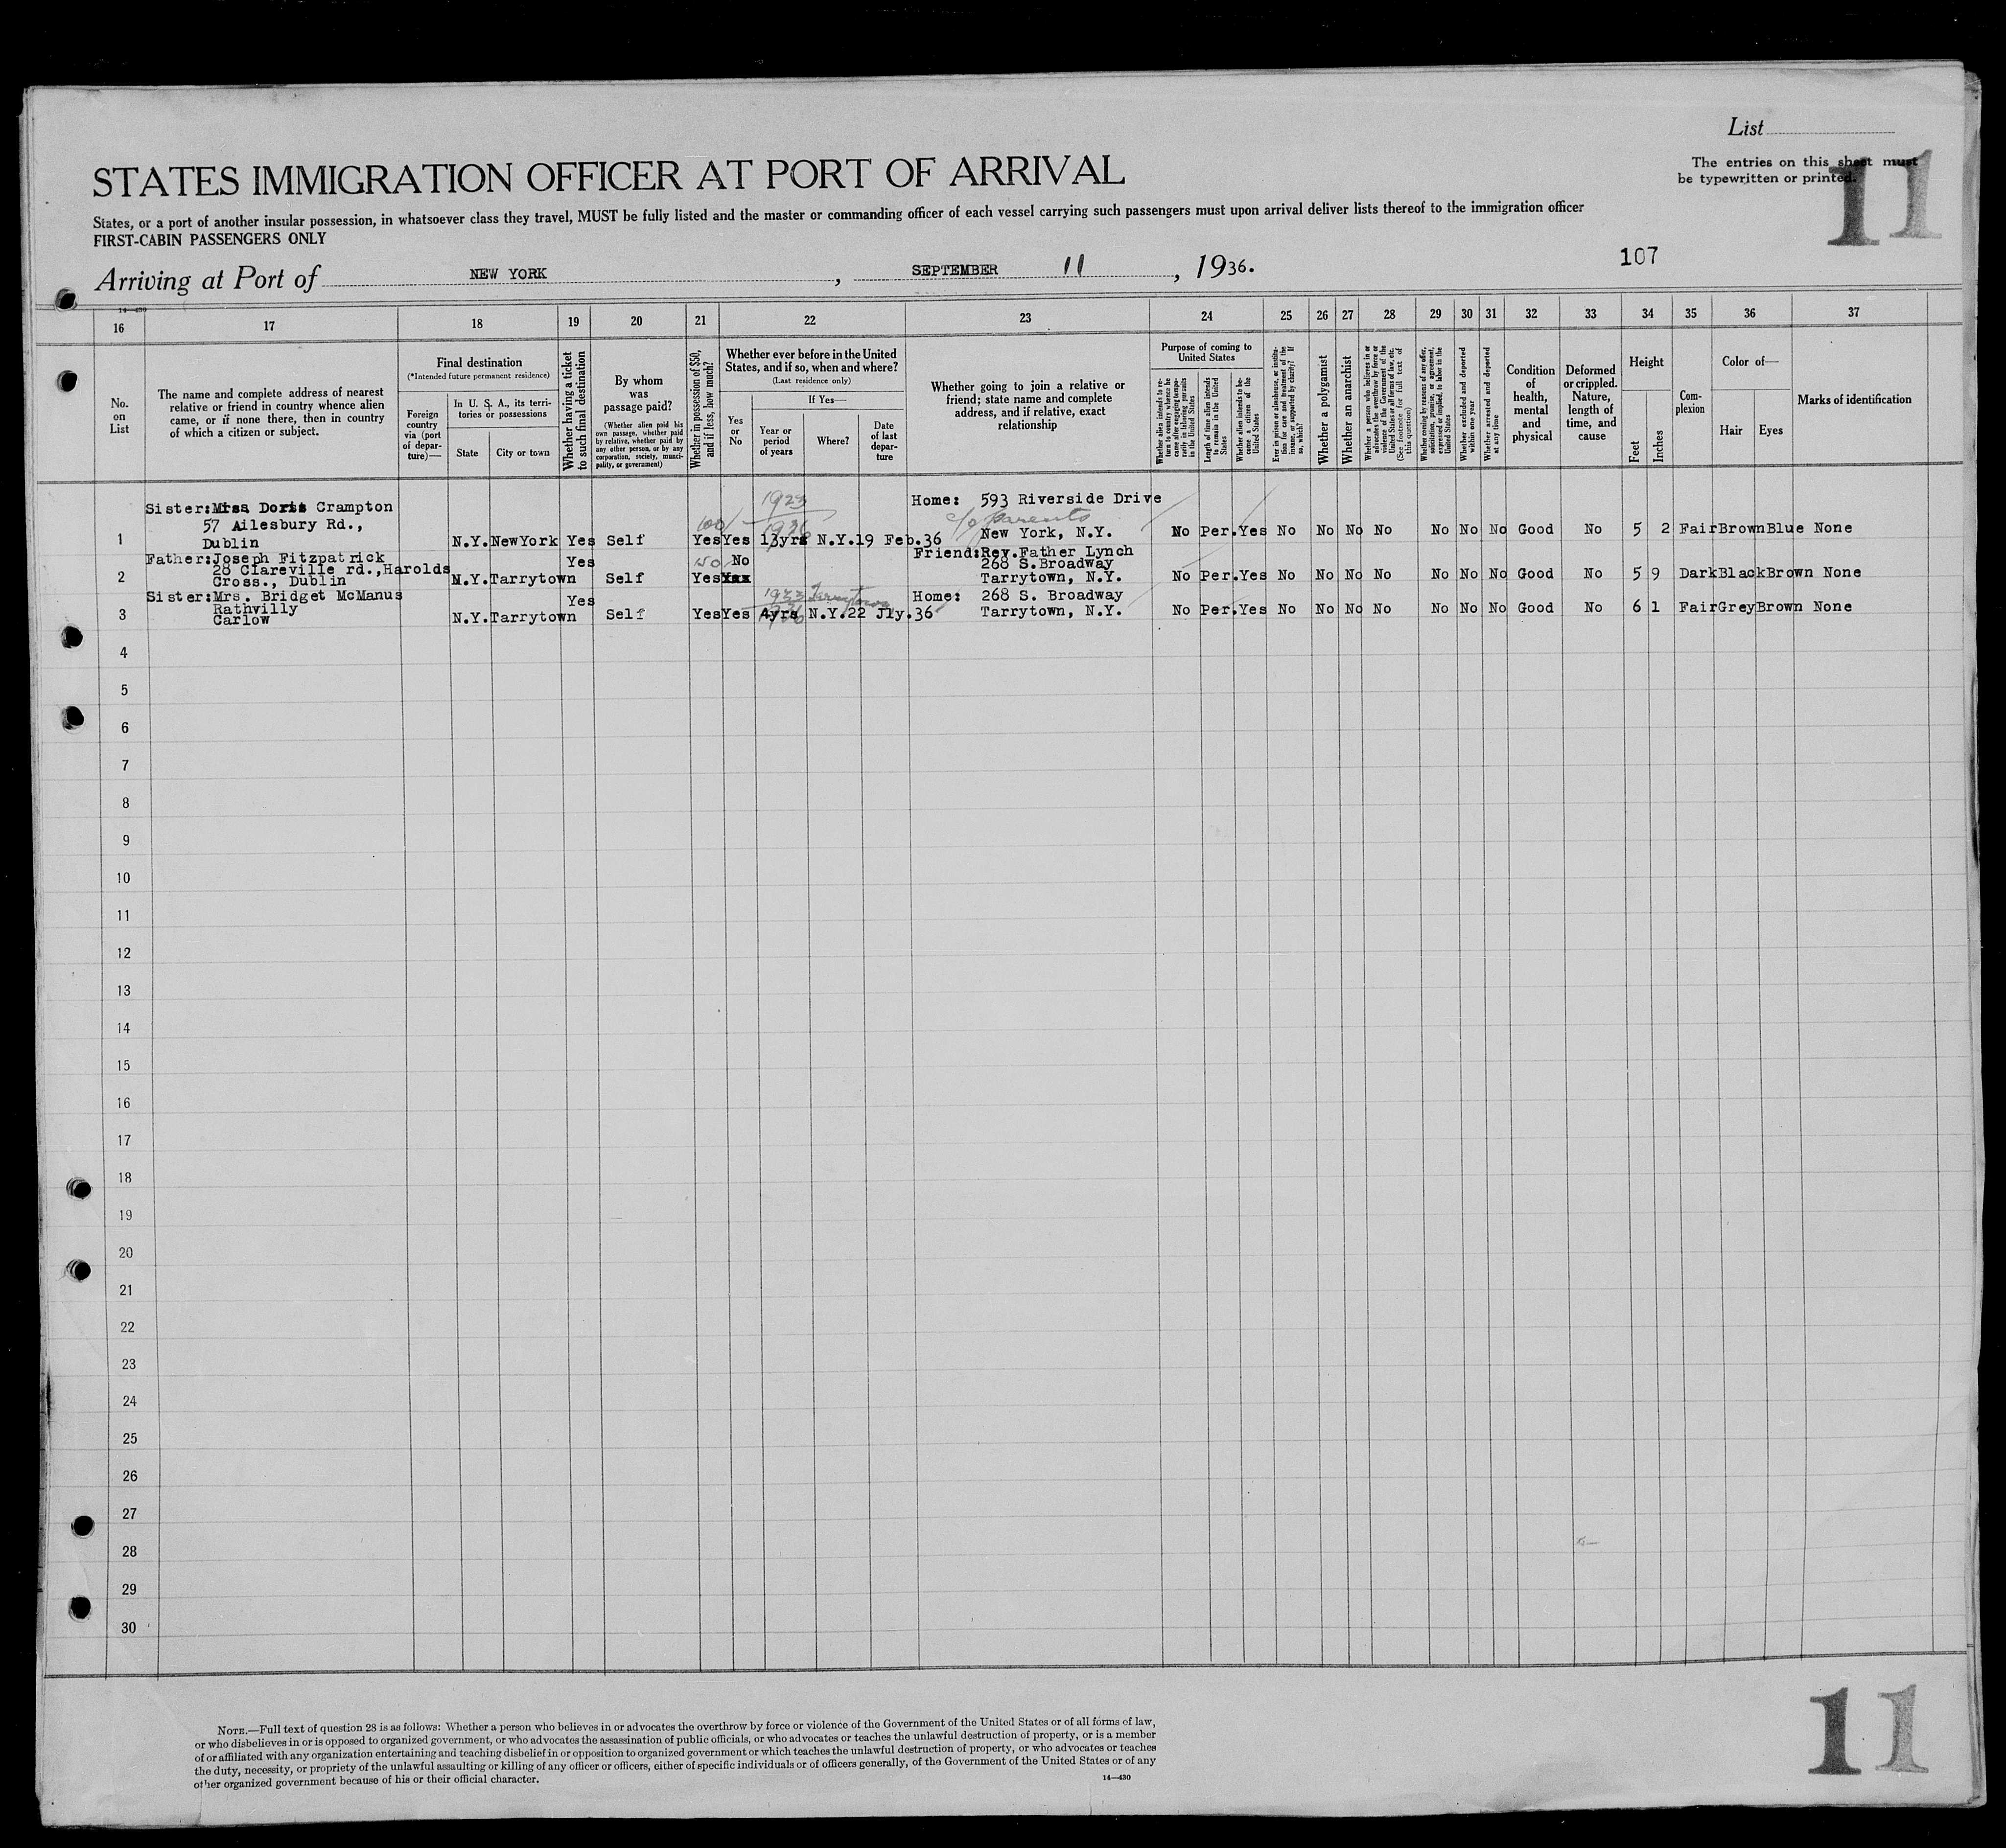 List
The entries on this sheet must
be typewritten or printed.
11
STATES IMMIGRATION OFFICER AT PORT OF ARRIVAL
States, or a port of another insular possession, in whatsoever class they travel, MUST be fully listed and the master or commanding officer of each vessel carrying such passengers must upon arrival deliver lists thereof to the immigration officer
FIRST-CABIN PASSENGERS ONLY
107
Arriving at Port of NEW YORK, SEPTEMBER 11, 1936.
14—430
16 17 18 19 20 21 22 23 24 25 26 27 28 29 30 31 32 33 34 35 36 37
No. on List
The name and complete address of nearest
relative or friend in country whence alien
came, or if none there, then in country
of which a citizen or subject.
Final destination
(*Intended future permanent residence)
Foreign country via (port of depar-ture)—
In U. S. A., its terri-
tories or possessions
State City or town
Whether having a ticket to such final destination
By whom was passage paid?
(Whether alien paid his own passage, whether paid by relative, whether paid by any other person, or by any corporation, society, munici-pality, or government)
Whether in possession of $50, and if less, how much?
Whether ever before in the United
States, and if so, when and where?
(Last residence only)
Yes or No
If Yes—
Year or period of years
Where?
Date of last depar-ture
Whether going to join a relative or
friend; state name and complete
address, and if relative, exact
relationship
Purpose of coming to
United States
Whether alien intends to re-turn to country whence he came after engaging tempo-rarily in laboring pursuits in the United States
Length of time alien intends to remain in the United States
Whether alien intends to be-come a citizen of the United States
Ever in prison or almshouse, or institu-tion for care and treatment of the insane, or supported by charity? If so, which?
Whether a polygamist
Whether an anarchist
Whether a person who believes in or advocates the overthrow by force or violence of the Government of the United States or all forms of law, etc. (See footnote for full text of this question)
Whether coming by reasons of any offer, solicitation, promise, or agreement, expressed or implied, to labor in the United States
Whether excluded and deported within one year
Whether arrested and deported at any time
Condition of health, mental and physical
Deformed or crippled. Nature, length of time, and cause
Height
Feet Inches
Com-plexion
Color of—
Hair Eyes
Marks of identification
Sister: Miss Doris Crampton 1923 Home: 593 Riverside Drive
57 Ailesbury Rd., 100 c/o parents
1 Dublin N.Y. NewYork Yes Self Yes Yes 13yrs 1936 N.Y. 19 Feb.36 New York, N.Y. No Per. Yes No No No No No No No Good No 5 2 Fair Brown Blue None
Father: Joseph Fitzpatrick Yes 50 No Friend: Rev. Father Lynch
28 Clareville rd., Harolds 268 S.Broadway
2 Cross., Dublin N.Y. Tarrytown Self Yes Tarrytown, N.Y. No Per. Yes No No No No No No No Good No 5 9 Dark Black Brown None
Sister: Mrs. Bridget McManus Yes 1933 Tarrytown Home: 268 S. Broadway
Rathvilly
3 Carlow N.Y. Tarrytown Self Yes Yes 4yrs 1936 N.Y. 22 Jly.36 Tarrytown, N.Y. No Per. Yes No No No No No No No Good No 6 1 Fair Grey Brown None
4
5
6
7
8
9
10
11
12
13
14
15
16
17
18
19
20
21
22
23
24
25
26
27
28
29
30
NOTE.—Full text of question 28 is as follows: Whether a person who believes in or advocates the overthrow by force or violence of the Government of the United States or of all forms of law,
or who disbelieves in or is opposed to organized government, or who advocates the assassination of public officials, or who advocates or teaches the unlawful destruction of property, or is a member
of or affiliated with any organization entertaining and teaching disbelief in or opposition to organized government or which teaches the unlawful destruction of property, or who advocates or teaches
the duty, necessity, or propriety of the unlawful assaulting or killing of any officer or officers, either of specific individuals or of officers generally, of the Government of the United States or of any
other organized government because of his or their official character.
14—430
11